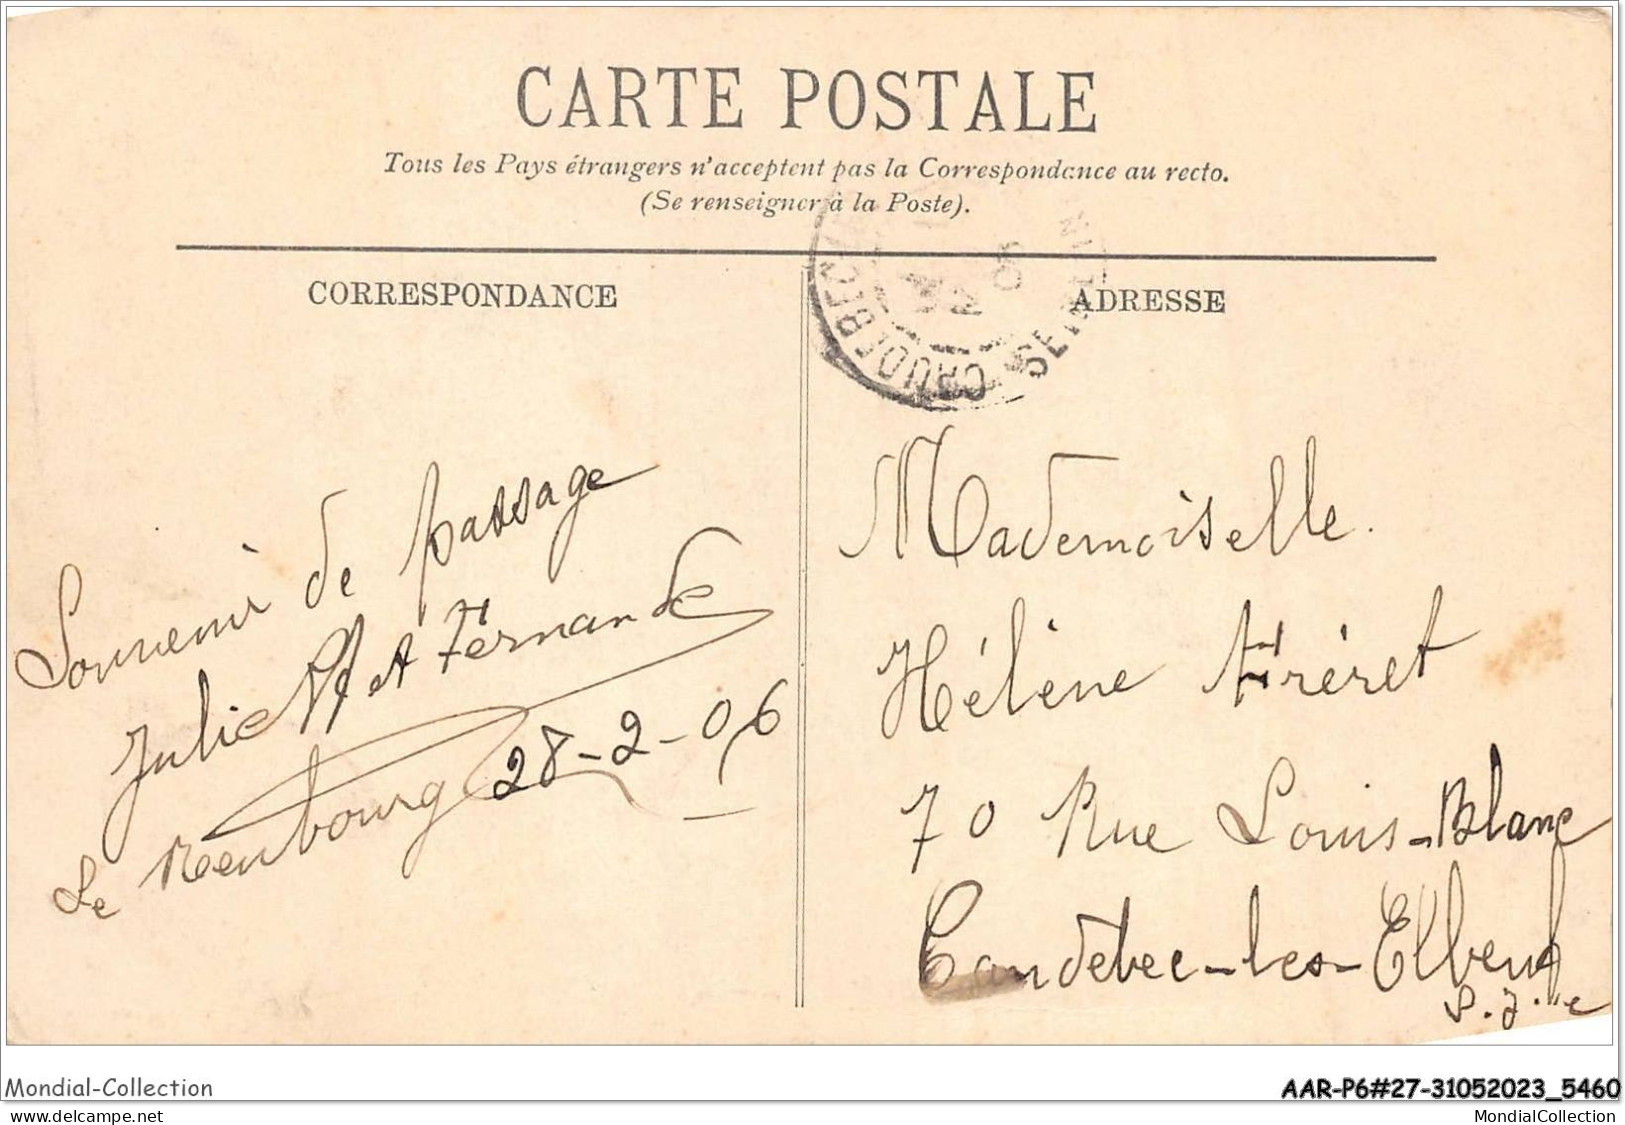 CARTE POSTALE
Tous les Pays étrangers n'acceptent pas la Correspondance au recto.
(Se renseigner à la Poste).
CORRESPONDANCE
ADRESSE
CAUDEBEC
Souvenir de passage
Julie et Fernande
Le Neubourg 28-2-06
Mademoiselle.
Hélène Fréret
70 Rue Louis-Blanc
Caudebec-les-Elbeuf
S. I. re
Mondial-Collection
AAR-P6#27-31052023_5460
www.delcampe.net
MondialCollection